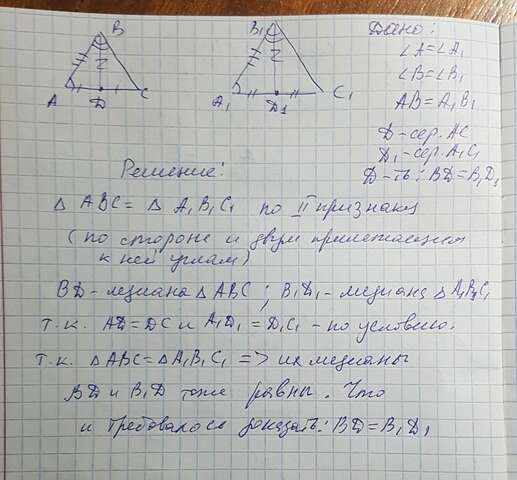 B
A
D
C
B₁
A₁
D₁
C₁
Дано:
∠A=∠A₁
∠B=∠B₁
AB=A₁B₁
D-сер. AC
D₁-сер. A₁C₁
Д-ть: BD=B₁D₁
Решение:
△ ABC = △ A₁B₁C₁ по II признаку
(по стороне и двум прилежащим
к ней углам)
BD-медиана △ ABC; B₁D₁-медиана △ A₁B₁C₁
т.к. AD=DC и A₁D₁=D₁C₁ - по условию.
т.к. △ABC=△A₁B₁C₁ => их медианы
BD и B₁D тоже равны. Что
и требовалось доказать: BD=B₁D₁